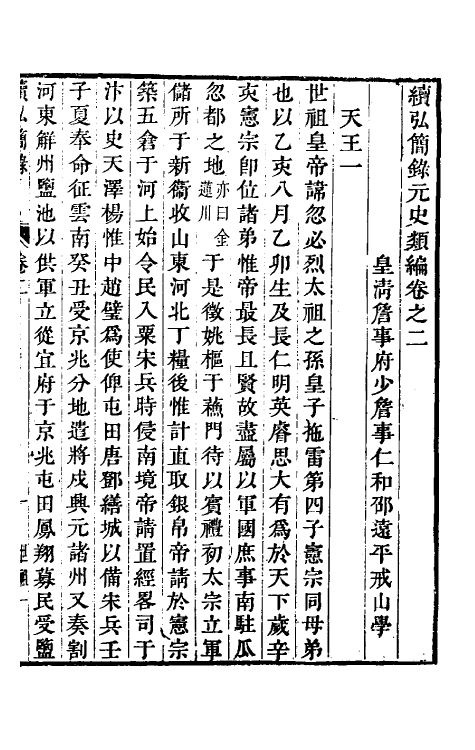 續弘簡錄元史類編卷之二
皇淸詹事府少詹事仁和邵遠平戒山學
天王一
世祖皇帝諱忽必烈太祖之孫皇子拖雷第四子憲宗同母弟
也以乙亥八月乙卯生及長仁明英睿思大有爲於天下歲辛
亥憲宗卽位諸弟惟帝最長且賢故盡屬以軍國庶事南駐瓜
忽都之地亦曰金蓮川于是徵姚樞于蘓門待以賓禮初太宗立軍
儲所于新衞收山東河北丁糧後惟計直取銀帛帝請於憲宗
築五倉于河上始令民入粟宋兵時侵南境帝請置經畧司于
汴以史天澤楊惟中趙璧爲使俾屯田唐鄧繕城以備宋兵壬
子夏奉命征雲南癸丑受京兆分地遣將戍興元諸州又奏割
河東解州鹽池以供軍立從宜府于京兆屯田鳳翔募民受鹽